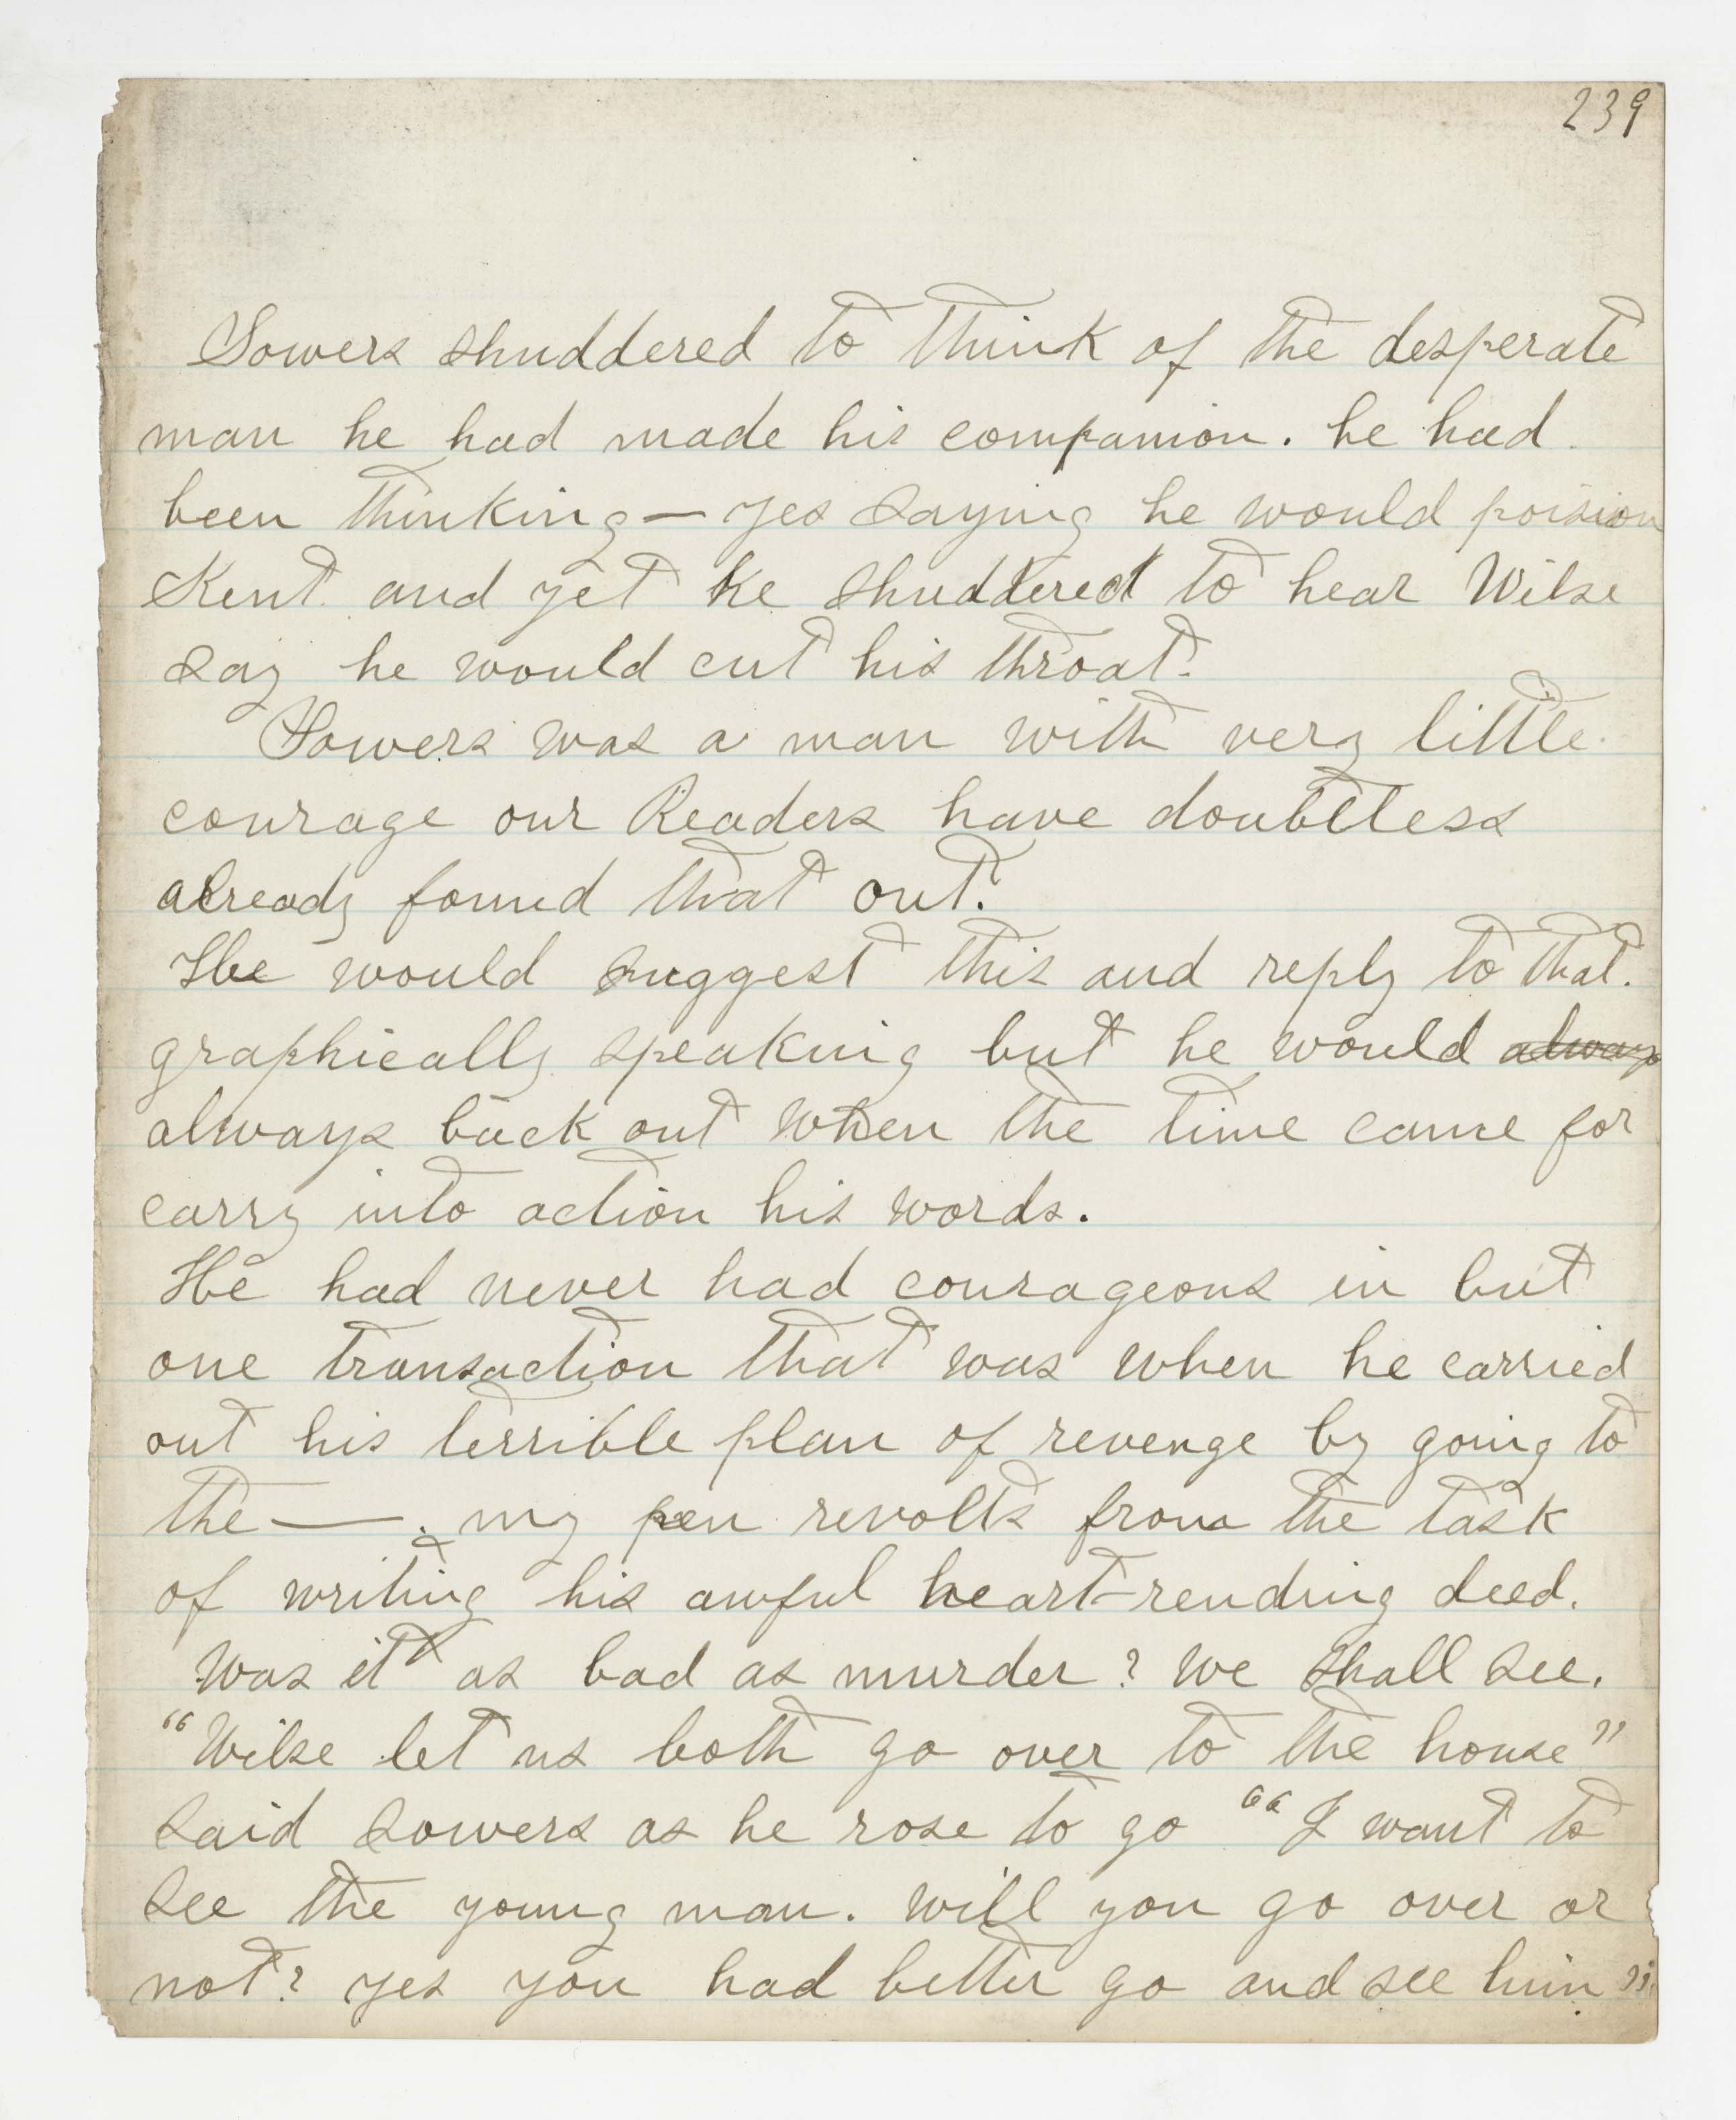 239
Sowers shuddered to think of the desperate
man he had made his companion. he had
been thinking — yes saying he would poision
Kent and yet he shuddered to hear Wilse
say he would cut his throat.
Sowers was a man with very little
courage our Readers have doubtless
already found that out.
He would suggest this and reply to that.
graphically speaking but he would always
always back out when the time came for
carry into action his words.
He had never had courageous in but
one transaction that was when he carried
out his terrible plan of revenge by going to
the — . my pen revolts from the task
of writing his awful heart-rending deed.
Was it as bad as murder? we shall see.
"Wilse let us both go over to the house"
said Sowers as he rose to go "I want to
see the young man. will you go over or
not? yes you had better go and see him"